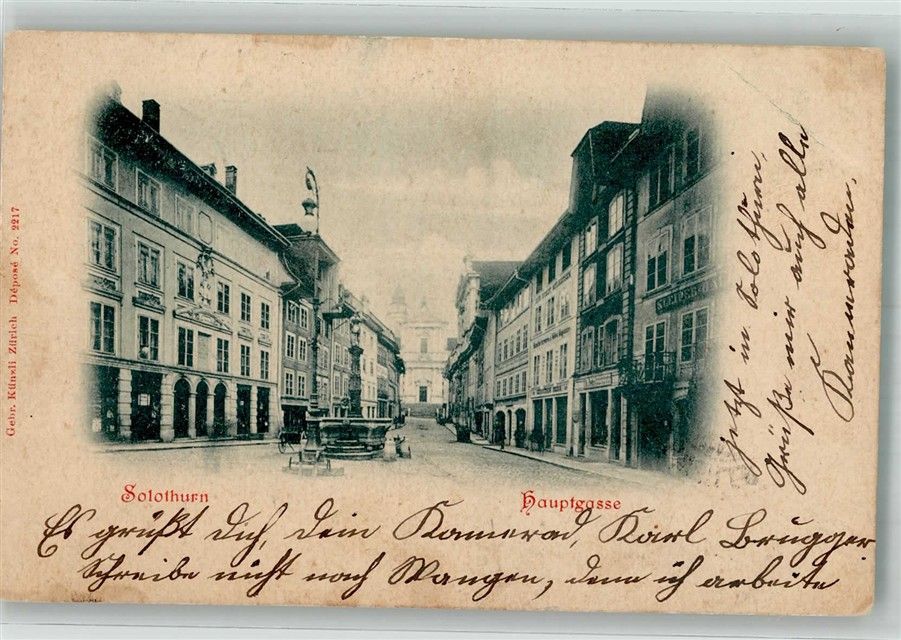 Gebr. Künzli Zürich Déposé No. 2217
Solothurn
Hauptgasse
Es grüßt dich, dein Kamerad, Karl Brugger
Schreibe nicht nach Wangen, denn ich arbeite
jetzt in Solothurn,
Grüße mir auch alle
Kameraden.